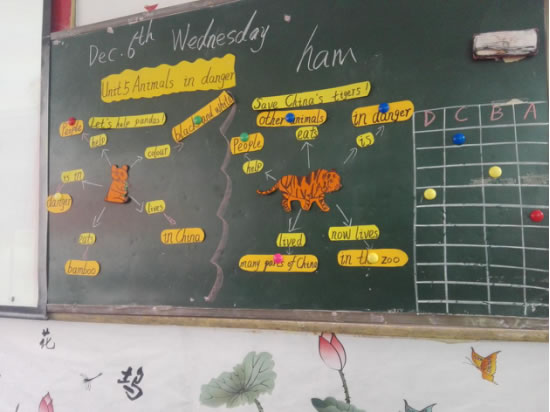 Dec. 6th Wednesday ham
Unit 5 Animals in danger
People
Let's help pandas
black and white
help
colour
is in
danger
lives
eats
in China
bamboo
Save China's tigers!
other animals
in danger
People
eats
is
help
lived
now lives
many parts of China
in the zoo
D C B A
花